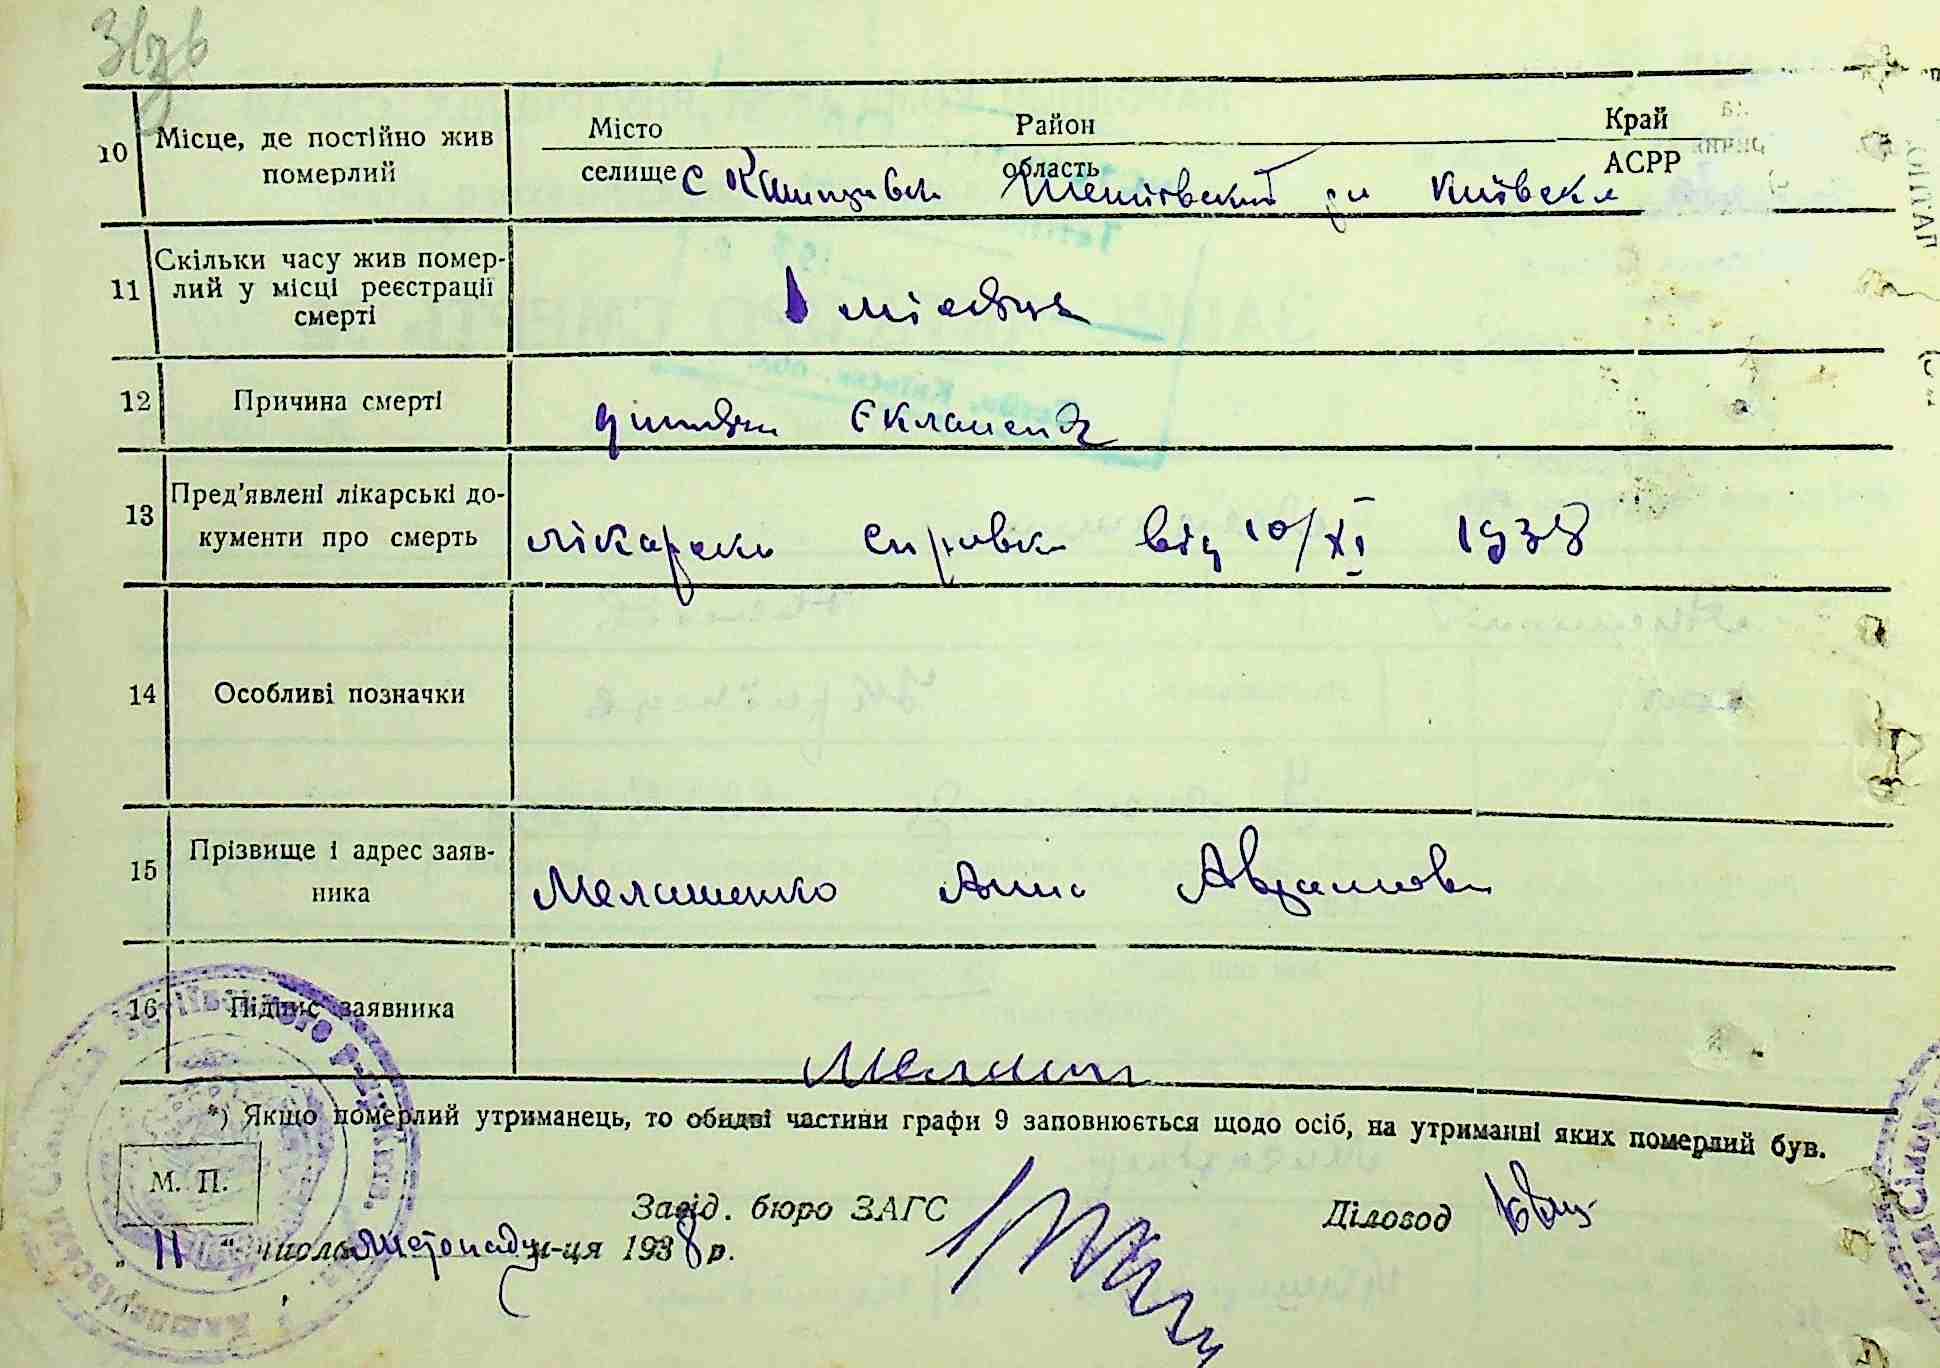 10 Місце, де постійно жив померлий
Місто Район Край
селище область АСРР
с
11 Скільки часу жив помер-
лий у місці реєстрації
смерті
1 місяць
12 Причина смерті
13 Пред'явлені лікарські до-
кументи про смерть
лікарська справка від 10/XI 1938
14 Особливі позначки
15 Прізвище і адрес заяв-
ника
Мелашенко Анна Аврамовна
16 Підпис заявника
*) Якщо померлий утриманець, то обидві частини графи 9 заповнюється щодо осіб, на утриманні яких померлий був.
М. П.
Завід. бюро ЗАГС Діловод
„11" числа листопаду м-ця 1938 р.